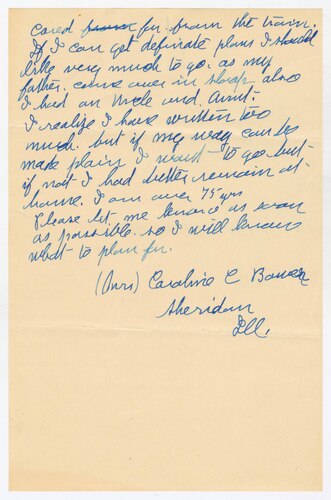 cared for from the train.
If I can get definate plans I should
like very much to go. as my
father. came over in sloop also
I had an Uncle and Aunt.
I realize I have written too
much. but if my way can be
made plain I want to go but
if not I had better remain at
home. I am over 75 yrs
Please let me know as soon
as possible so I will know
what to plan for.
(Mrs) Caroline C Bower
Sheridan
Ill.